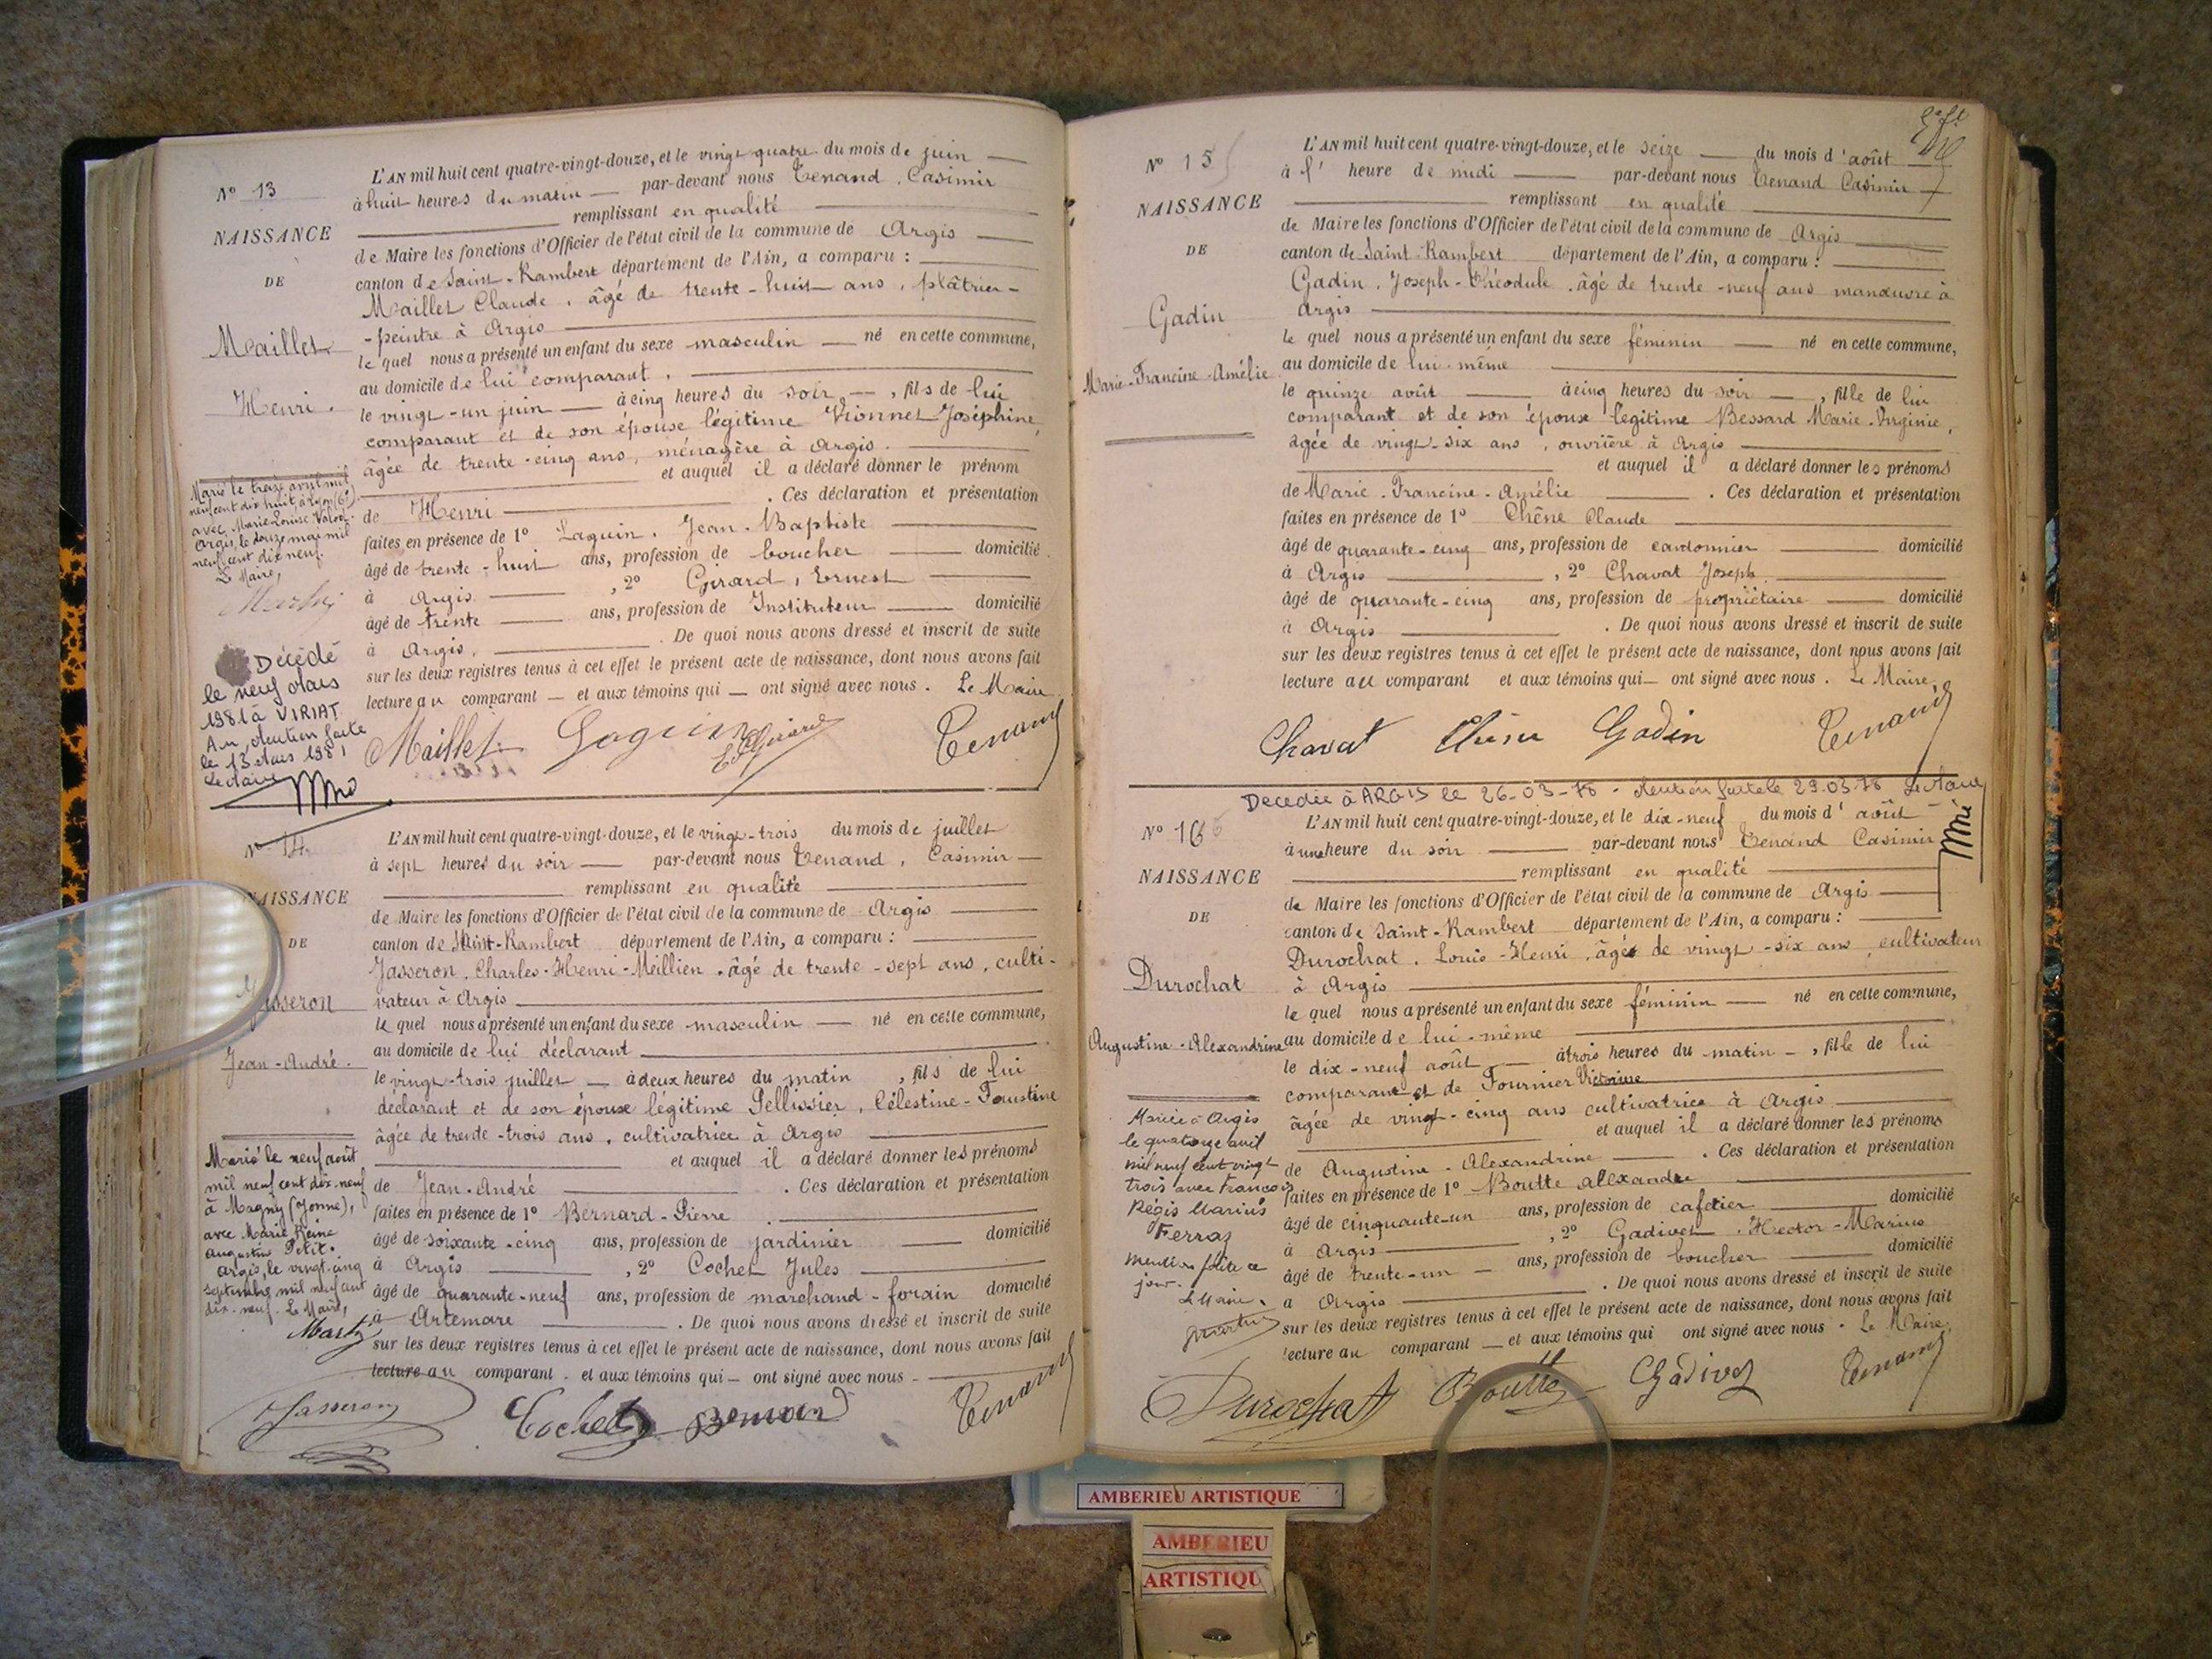 N° 13
NAISSANCE
DE
Maillet
Henri.
L'AN mil huit cent quatre-vingt-douze, et le vingt quatre du mois de juin
à huit heures du matin par-devant nous Tenand, Casimir
remplissant en qualité
de Maire les fonctions d'Officier de l'état civil de la commune de Argis
canton de Saint-Rambert département de l'Ain, a comparu :
Maillet Claude, âgé de trente-huit ans, plâtrier-
-peintre à Argis
le quel nous a présenté un enfant du sexe masculin né en cette commune,
au domicile de lui comparant,
le vingt-un juin à cinq heures du soir, fils de lui
comparant et de son épouse légitime Vionnet Joséphine,
âgée de trente-cinq ans, ménagère à Argis.
et auquel il a déclaré donner le prénom
de Henri . Ces déclaration et présentation
faites en présence de 1° Laguin, Jean-Baptiste
âgé de trente-huit ans, profession de boucher domicilié
à Argis , 2° Girard, Ernest
âgé de trente ans, profession de Instituteur domicilié
à Argis. . De quoi nous avons dressé et inscrit de suite
sur les deux registres tenus à cet effet le présent acte de naissance, dont nous avons fait
lecture au comparant et aux témoins qui ont signé avec nous. Le Maire
Maillet Laguin E. Girard Tenand
Marié le treize avril mil
neuf cent dix huit, à Lyon (6e)
avec Marie Louise
Argis, le douze mai mil
neuf cent dix neuf.
Le Maire,
Décédé
le neuf Mars
1981 à VIRIAT
Mention faite
le 13 Mars 1981
Le Maire
N° 14
NAISSANCE
DE
Jasseron
Jean-André.
L'AN mil huit cent quatre-vingt-douze, et le vingt-trois du mois de juillet
à sept heures du soir par-devant nous Tenand, Casimir
remplissant en qualité
de Maire les fonctions d'Officier de l'état civil de la commune de Argis
canton de Saint-Rambert département de l'Ain, a comparu :
Jasseron, Charles-Henri-Meillien, âgé de trente-sept ans, culti-
vateur à Argis
le quel nous a présenté un enfant du sexe masculin né en cette commune,
au domicile de lui déclarant
le vingt-trois juillet à deux heures du matin , fils de lui
déclarant et de son épouse légitime Pellissier, Célestine-Faustine
âgée de trente-trois ans, cultivatrice à Argis
et auquel il a déclaré donner les prénoms
de Jean-André . Ces déclaration et présentation
faites en présence de 1° Bernard-Pierre
âgé de soixante-cinq ans, profession de jardinier domicilié
à Argis , 2° Cochet Jules
âgé de quarante-neuf ans, profession de marchand-forain domicilié
à Artemare . De quoi nous avons dressé et inscrit de suite
sur les deux registres tenus à cet effet le présent acte de naissance, dont nous avons fait
lecture au comparant et aux témoins qui ont signé avec nous
Jasseron Cochet Bernard Tenand
Marié le neuf août
mil neuf cent dix-neuf
à Magny (Yonne),
avec Marie Reine
Augustine Petit.
Argis, le vingt-cinq
septembre mil neuf cent
dix-neuf. Le Maire,
N° 15
NAISSANCE
DE
Gadin
Marie-Francine-Amélie
L'AN mil huit cent quatre-vingt-douze, et le seize du mois d'août
à l' heure de midi par-devant nous Tenand Casimir
remplissant en qualité
de Maire les fonctions d'Officier de l'état civil de la commune de Argis
canton de Saint-Rambert département de l'Ain, a comparu :
Gadin, Joseph-Théodule, âgé de trente-neuf ans manœuvre à
Argis
le quel nous a présenté un enfant du sexe féminin né en cette commune,
au domicile de lui-même
le quinze août à cinq heures du soir , fille de lui
comparant et de son épouse légitime Bessard Marie-Virginie,
âgée de vingt-six ans, ouvrière à Argis
et auquel il a déclaré donner les prénoms
de Marie-Francine-Amélie . Ces déclaration et présentation
faites en présence de 1° Chêne Claude
âgé de quarante-cinq ans, profession de cordonnier domicilié
à Argis , 2° Chavat Joseph
âgé de quarante-cinq ans, profession de propriétaire domicilié
à Argis . De quoi nous avons dressé et inscrit de suite
sur les deux registres tenus à cet effet le présent acte de naissance, dont nous avons fait
lecture au comparant et aux témoins qui ont signé avec nous. Le Maire,
Chavat Chêne Gadin Tenand
Décédée à ARGIS le 26-03-78 - Mention faite le 29.03.78 Le Maire
N° 16
NAISSANCE
DE
Durochat
Augustine-Alexandrine
L'AN mil huit cent quatre-vingt-douze, et le dix-neuf du mois d'août
à une heure du soir par-devant nous Tenand Casimir
remplissant en qualité
de Maire les fonctions d'Officier de l'état civil de la commune de Argis
canton de Saint-Rambert département de l'Ain, a comparu :
Durochat, Louis-Henri, âgé de vingt-six ans, cultivateur
à Argis
le quel nous a présenté un enfant du sexe féminin né en cette commune,
au domicile de lui-même
le dix-neuf août à trois heures du matin , fille de lui
comparant et de Fournier Victorine
âgée de vingt-cinq ans cultivatrice à Argis
et auquel il a déclaré donner les prénoms
de Augustine-Alexandrine . Ces déclaration et présentation
faites en présence de 1° Boutte Alexandre
âgé de cinquante-un ans, profession de cafetier domicilié
à Argis , 2° Gadivet, Hector-Marius
âgé de trente-un ans, profession de boucher domicilié
à Argis . De quoi nous avons dressé et inscrit de suite
sur les deux registres tenus à cet effet le présent acte de naissance, dont nous avons fait
lecture au comparant et aux témoins qui ont signé avec nous. Le Maire,
Durochat Boutte Gadivet Tenand
Mariée à Argis
le quatorze avril
mil neuf cent vingt
trois avec François
Régis Marius
Ferraz
Mention faite ce
jour.
Le Maire.
AMBERIEU ARTISTIQUE
AMBERIEU
ARTISTIQU